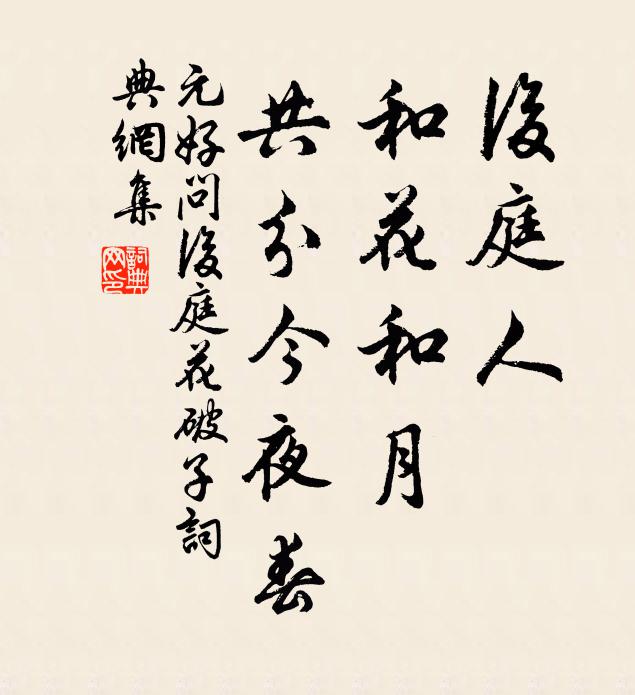 後庭人
和花和月
共分今夜春
元好問後庭花破子詞
典網集
詞典
网印